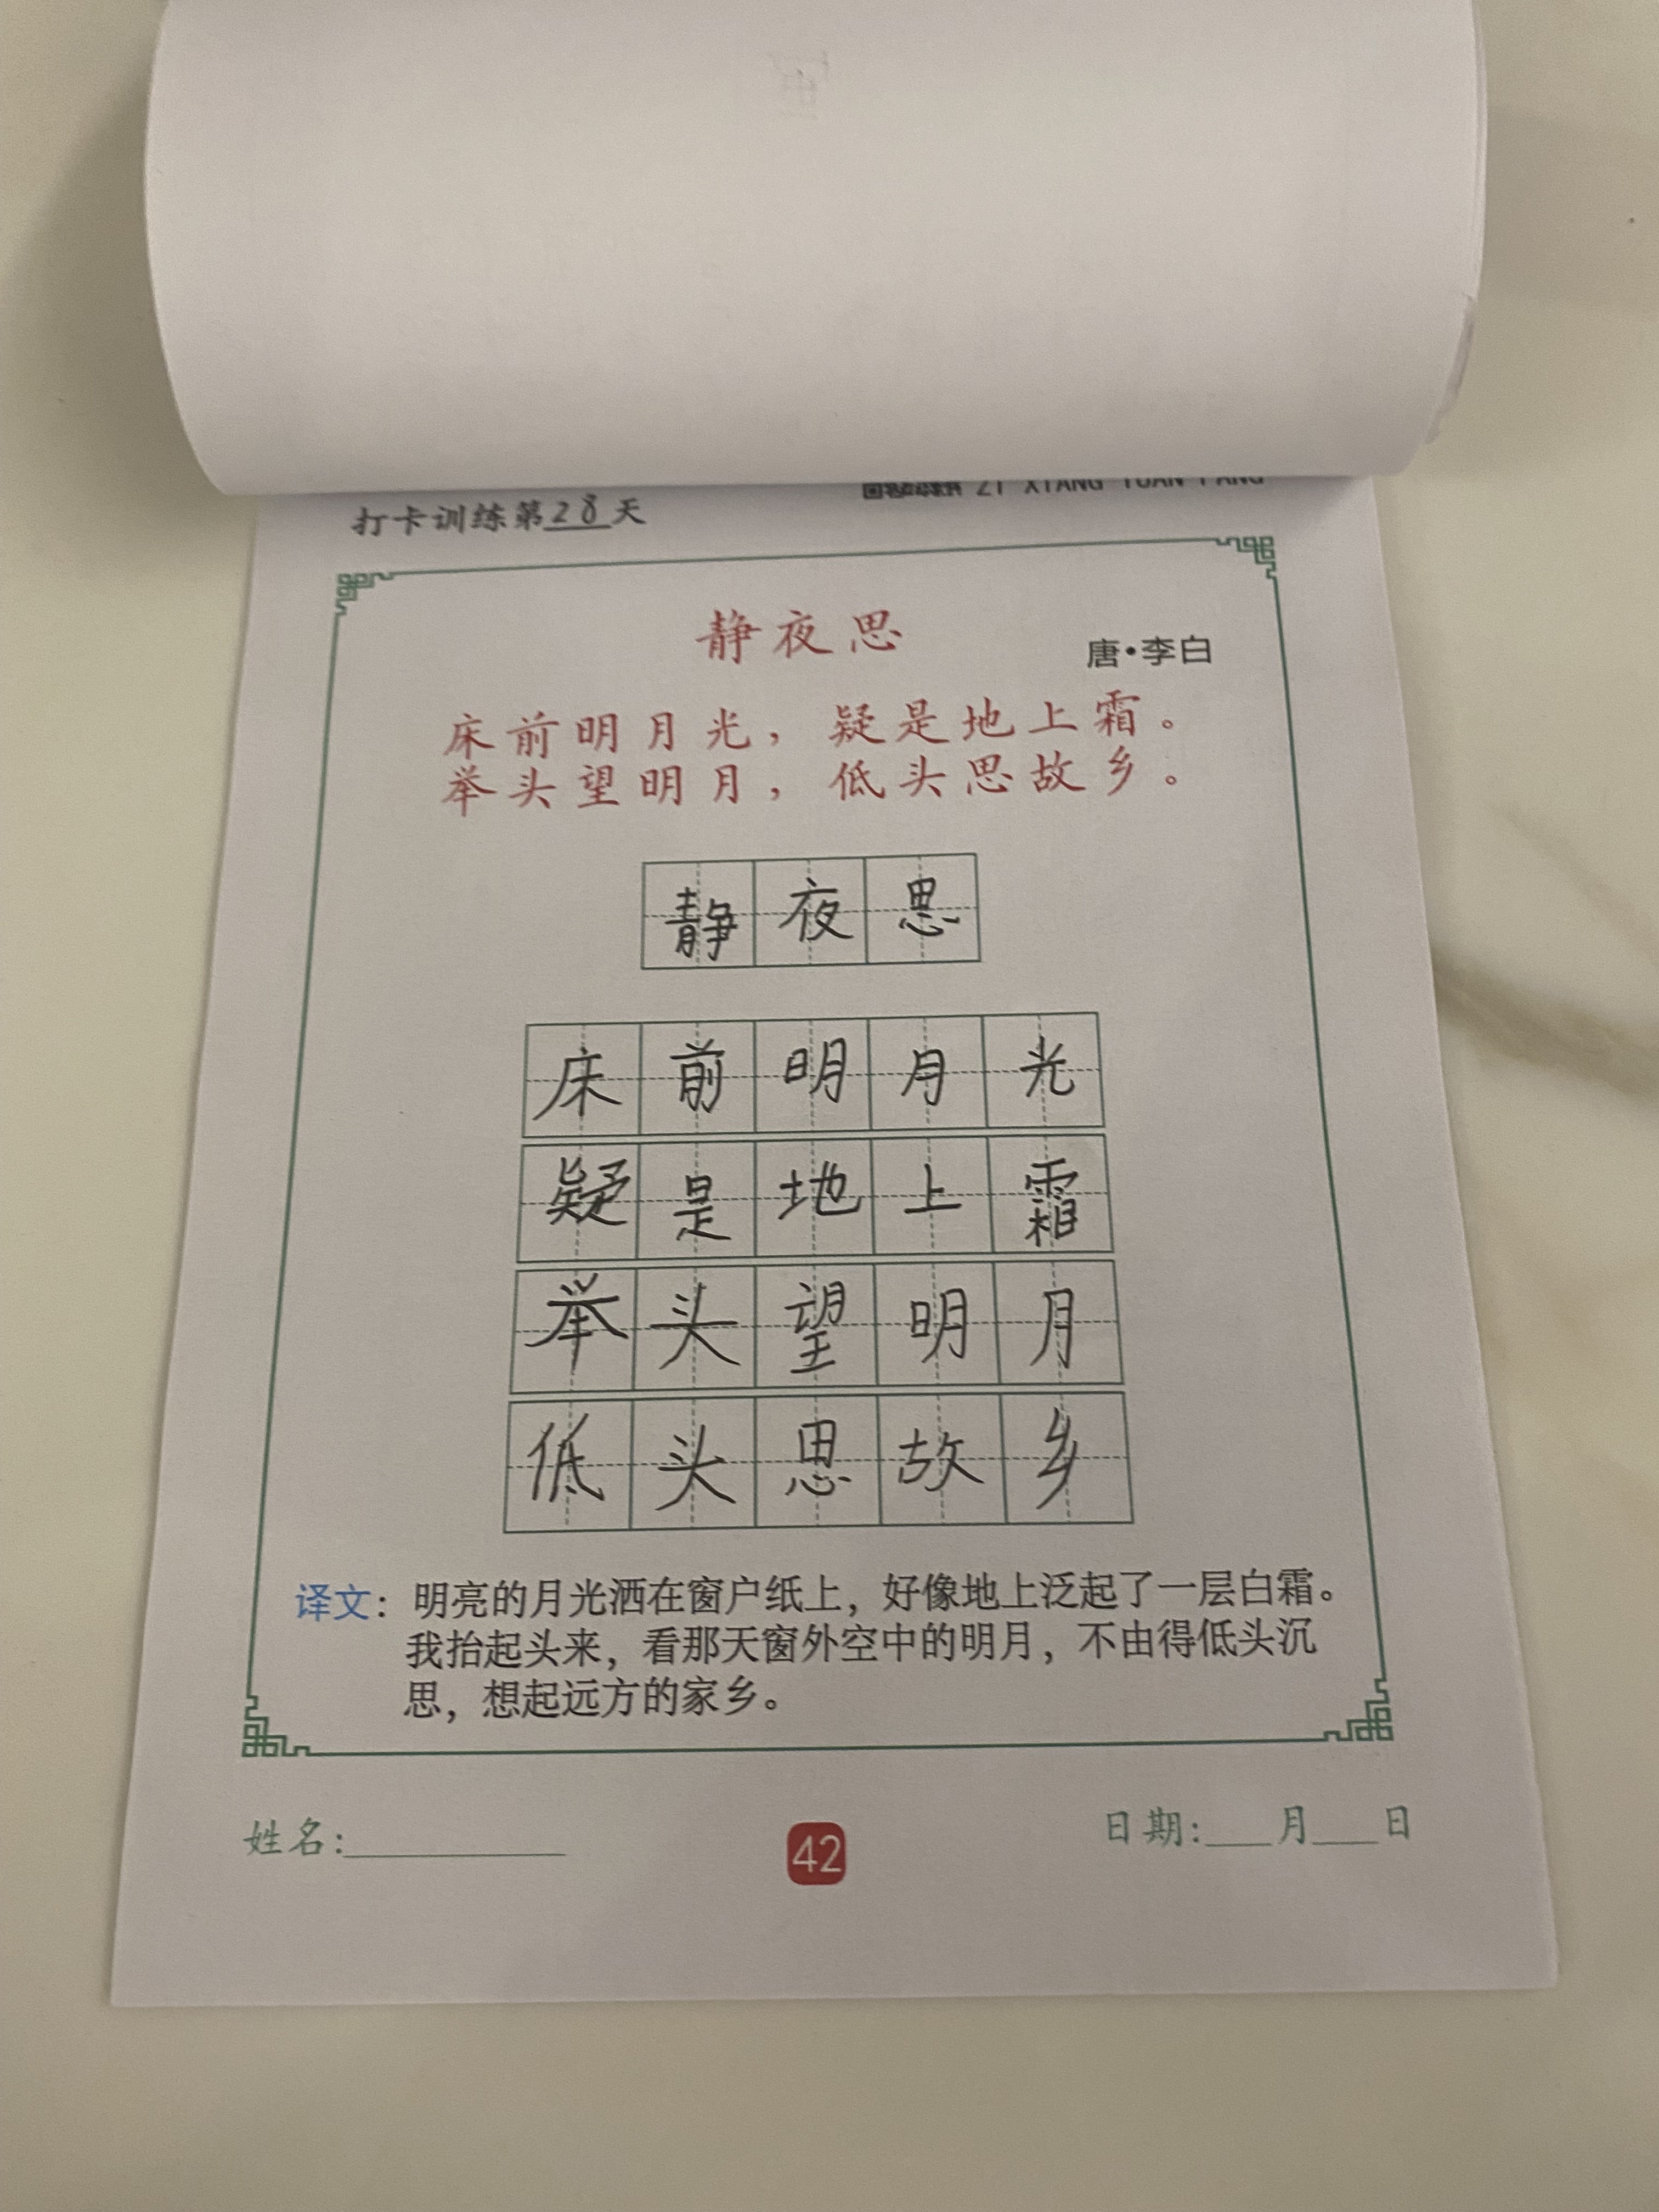 ZI XIANG YUAN FANG
打卡训练第28天
静夜思
唐·李白
床前明月光，疑是地上霜。
举头望明月，低头思故乡。
静夜思
床前明月光
疑是地上霜
举头望明月
低头思故乡
译文：明亮的月光洒在窗户纸上，好像地上泛起了一层白霜。
我抬起头来，看那天窗外空中的明月，不由得低头沉
思，想起远方的家乡。
姓名:
42
日期:___月___日